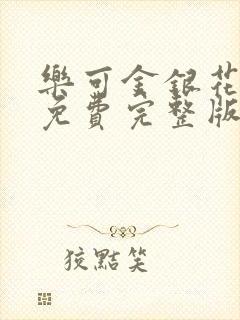 樂可金銀花
免費完整版
狡黠笑